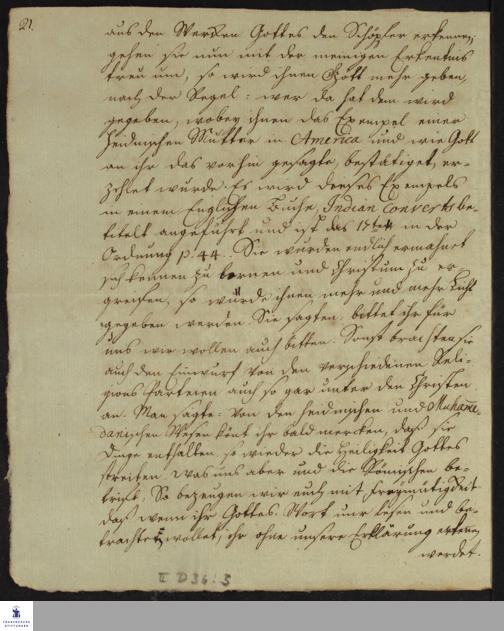 21.
aus den Wercken Gottes den Schöpfer erkennen;
gehen sie nun mit der wenigen Erkentnis
treu um, so wird ihnen Gott mehr geben,
nach der Regel: wer da hat dem wird
gegeben, wobey ihnen das Exempel einer
heidnischen Mutter in America und wie Gott
an ihr das vorhin gesagte, bestätiget, er-
zehlet wurde. Es wird dieses Exempels
in einem Englischen Buche, Indian Converts be-
titelt angeführt und ist das 15te in der
Ordnung p. 44. Sie wurden endlich ermahnet
sich kennen zu lernen und Christum zu er-
greifen, so würde ihnen mehr und mehr Licht
gegeben werden. Sie sagten: bittet ihr für
uns wir wollen auch bitten. Sonst brachten sie
auch den Einwurf von den verschiedenen Reli-
gions Parteien auch so gar unter den Christen
an. Man sagte: von den heidnischen und Muham̅e-
danischen Wesen könt ihr bald mercken, daß sie
Dinge enthalten, so wieder die Heiligkeit Gottes
streiten. was uns aber und die Römischen be-
trift; So bezeugen wir euch mit Freymütigkeit
daß wenn ihr Gottes Wort nur lesen und be-
trachten wollet, ihr ohne unsere Erklärung erkennen
werdet.
II D36:3
FRANCKESCHE
STIFTUNGEN